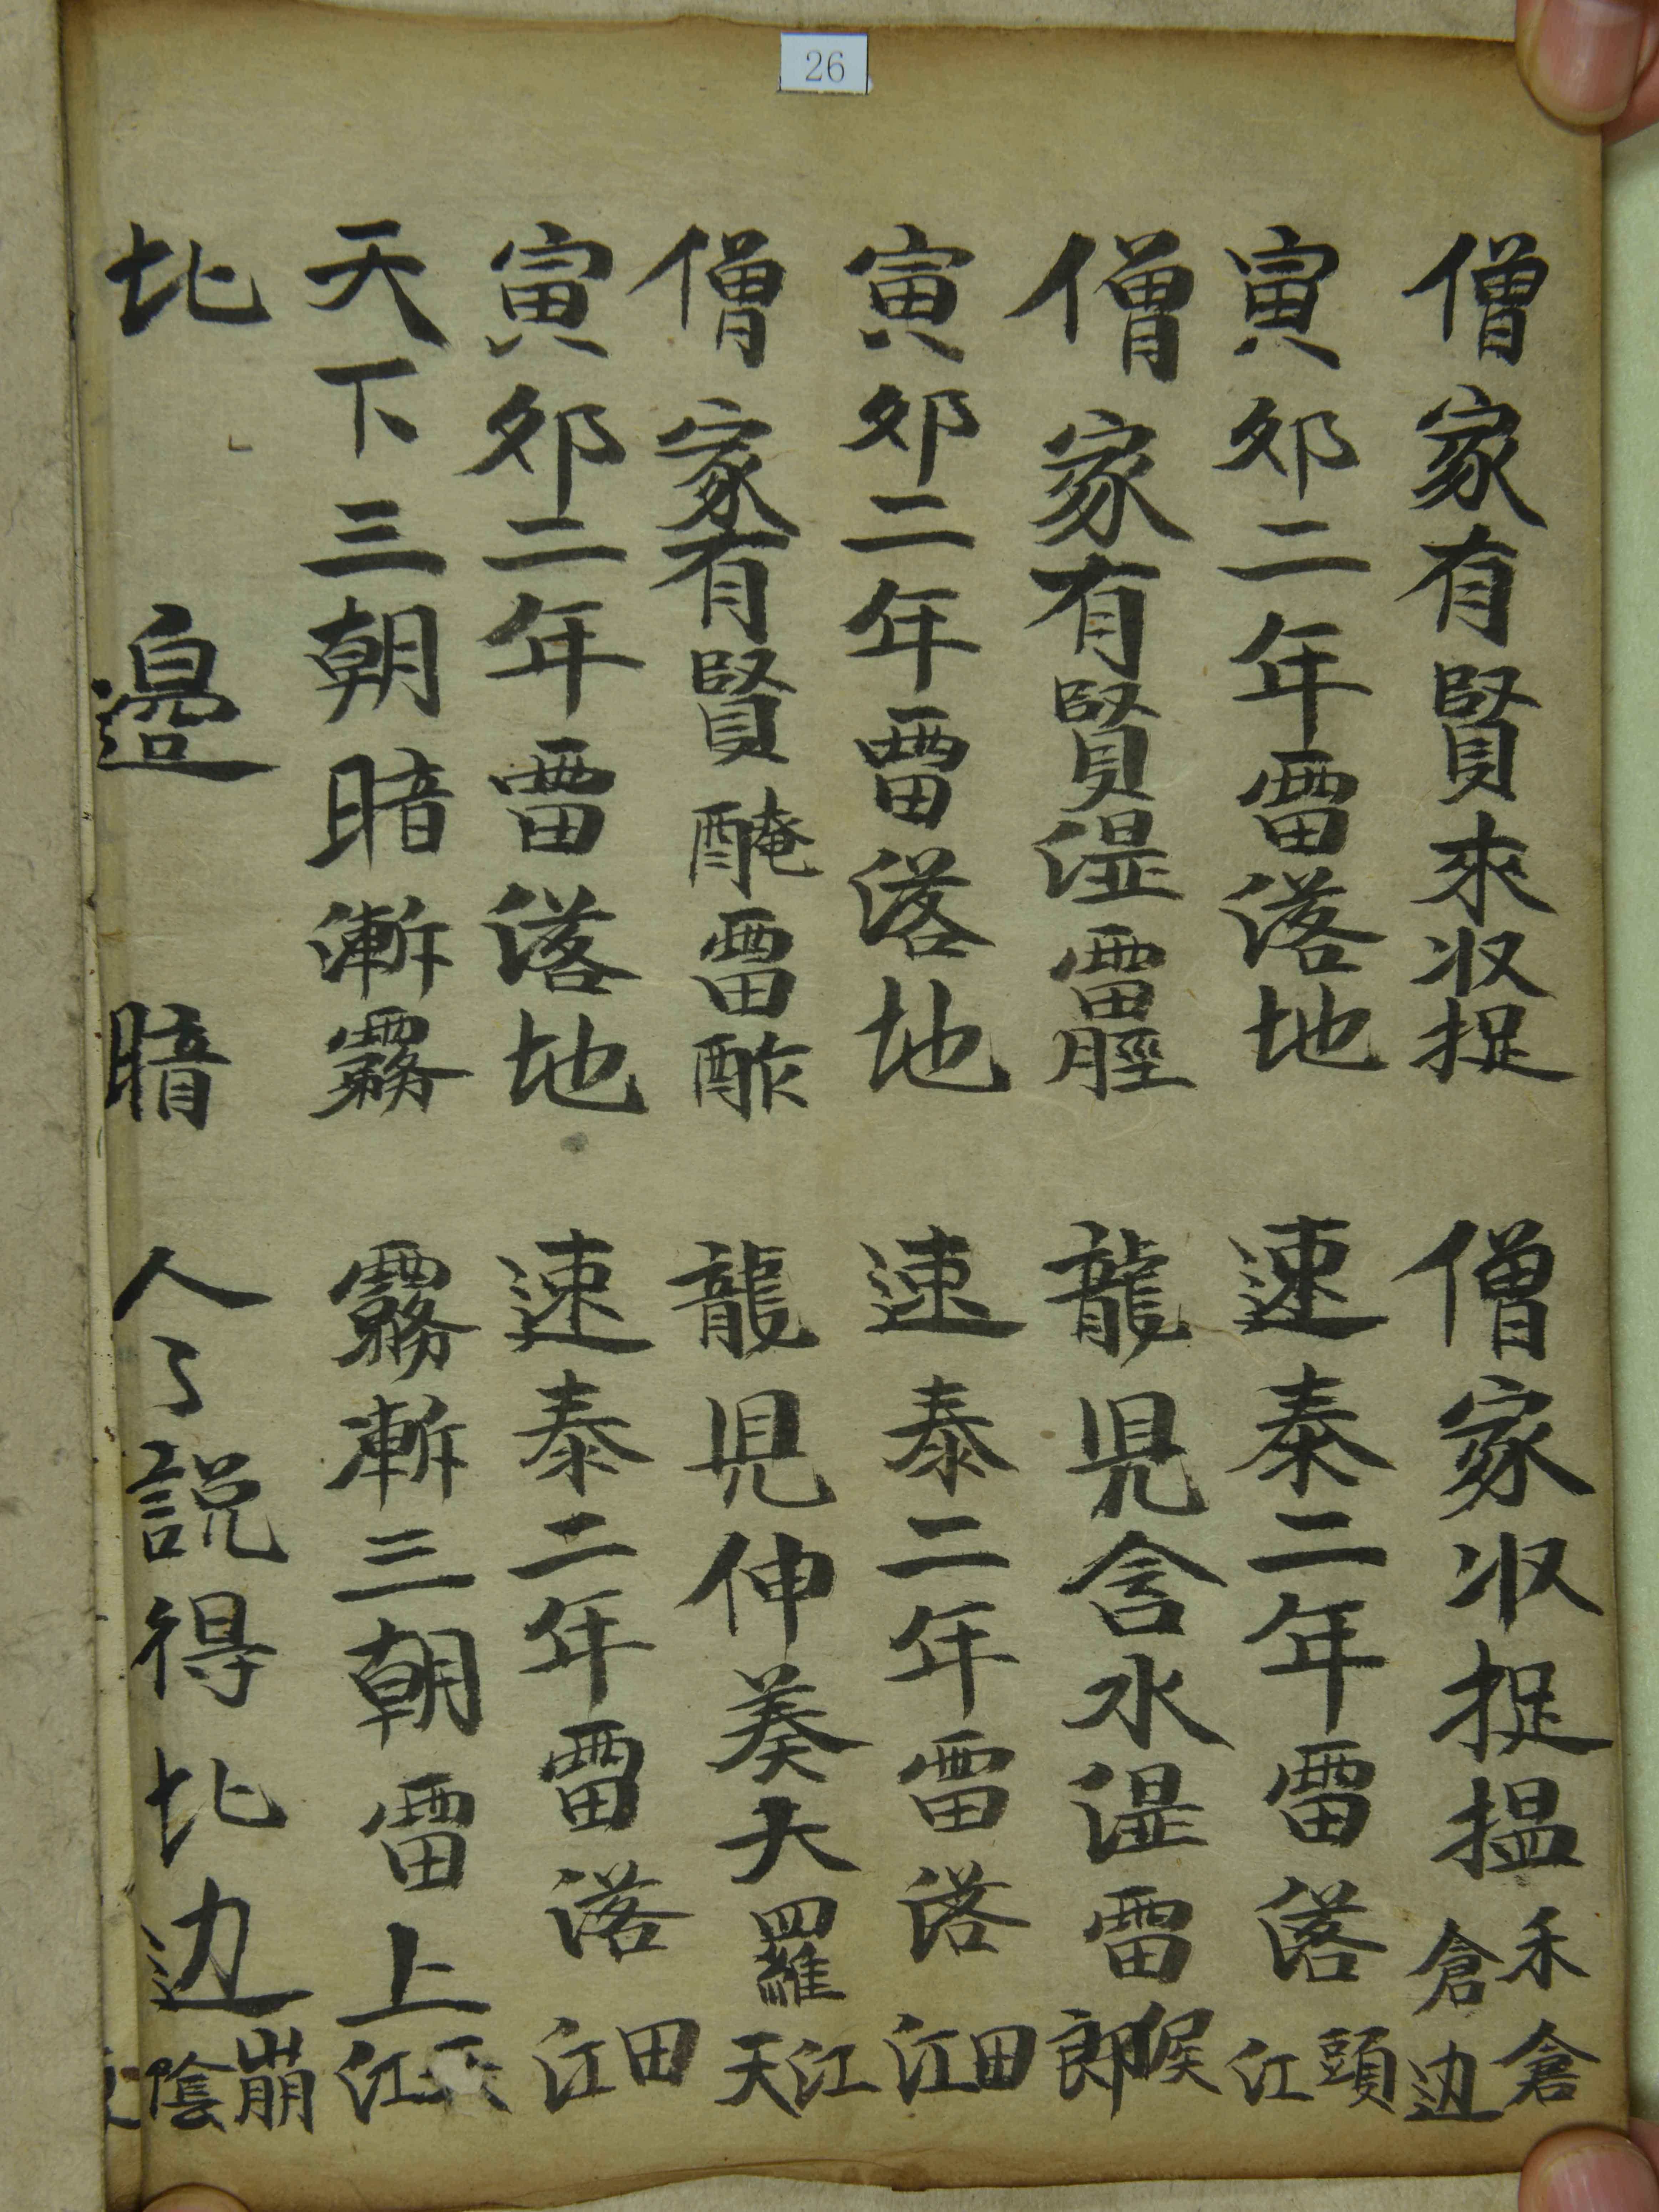 26
僧家有賢來収捉 僧家収捉揾禾倉倉边
寅夘二年雷落地 速泰二年雷落頭江
僧家有賢湿雷脛 龍児含水湿雷候郎
寅夘二年雷落地 速泰二年雷落田江
僧家有賢醃雷酢 龍児伸葵大羅江天
寅夘二年雷落地 速泰二年雷落田江
天下三朝暗漸霧 霧漸三朝雷上江
圠邉暗 人了説得圠边崩陰